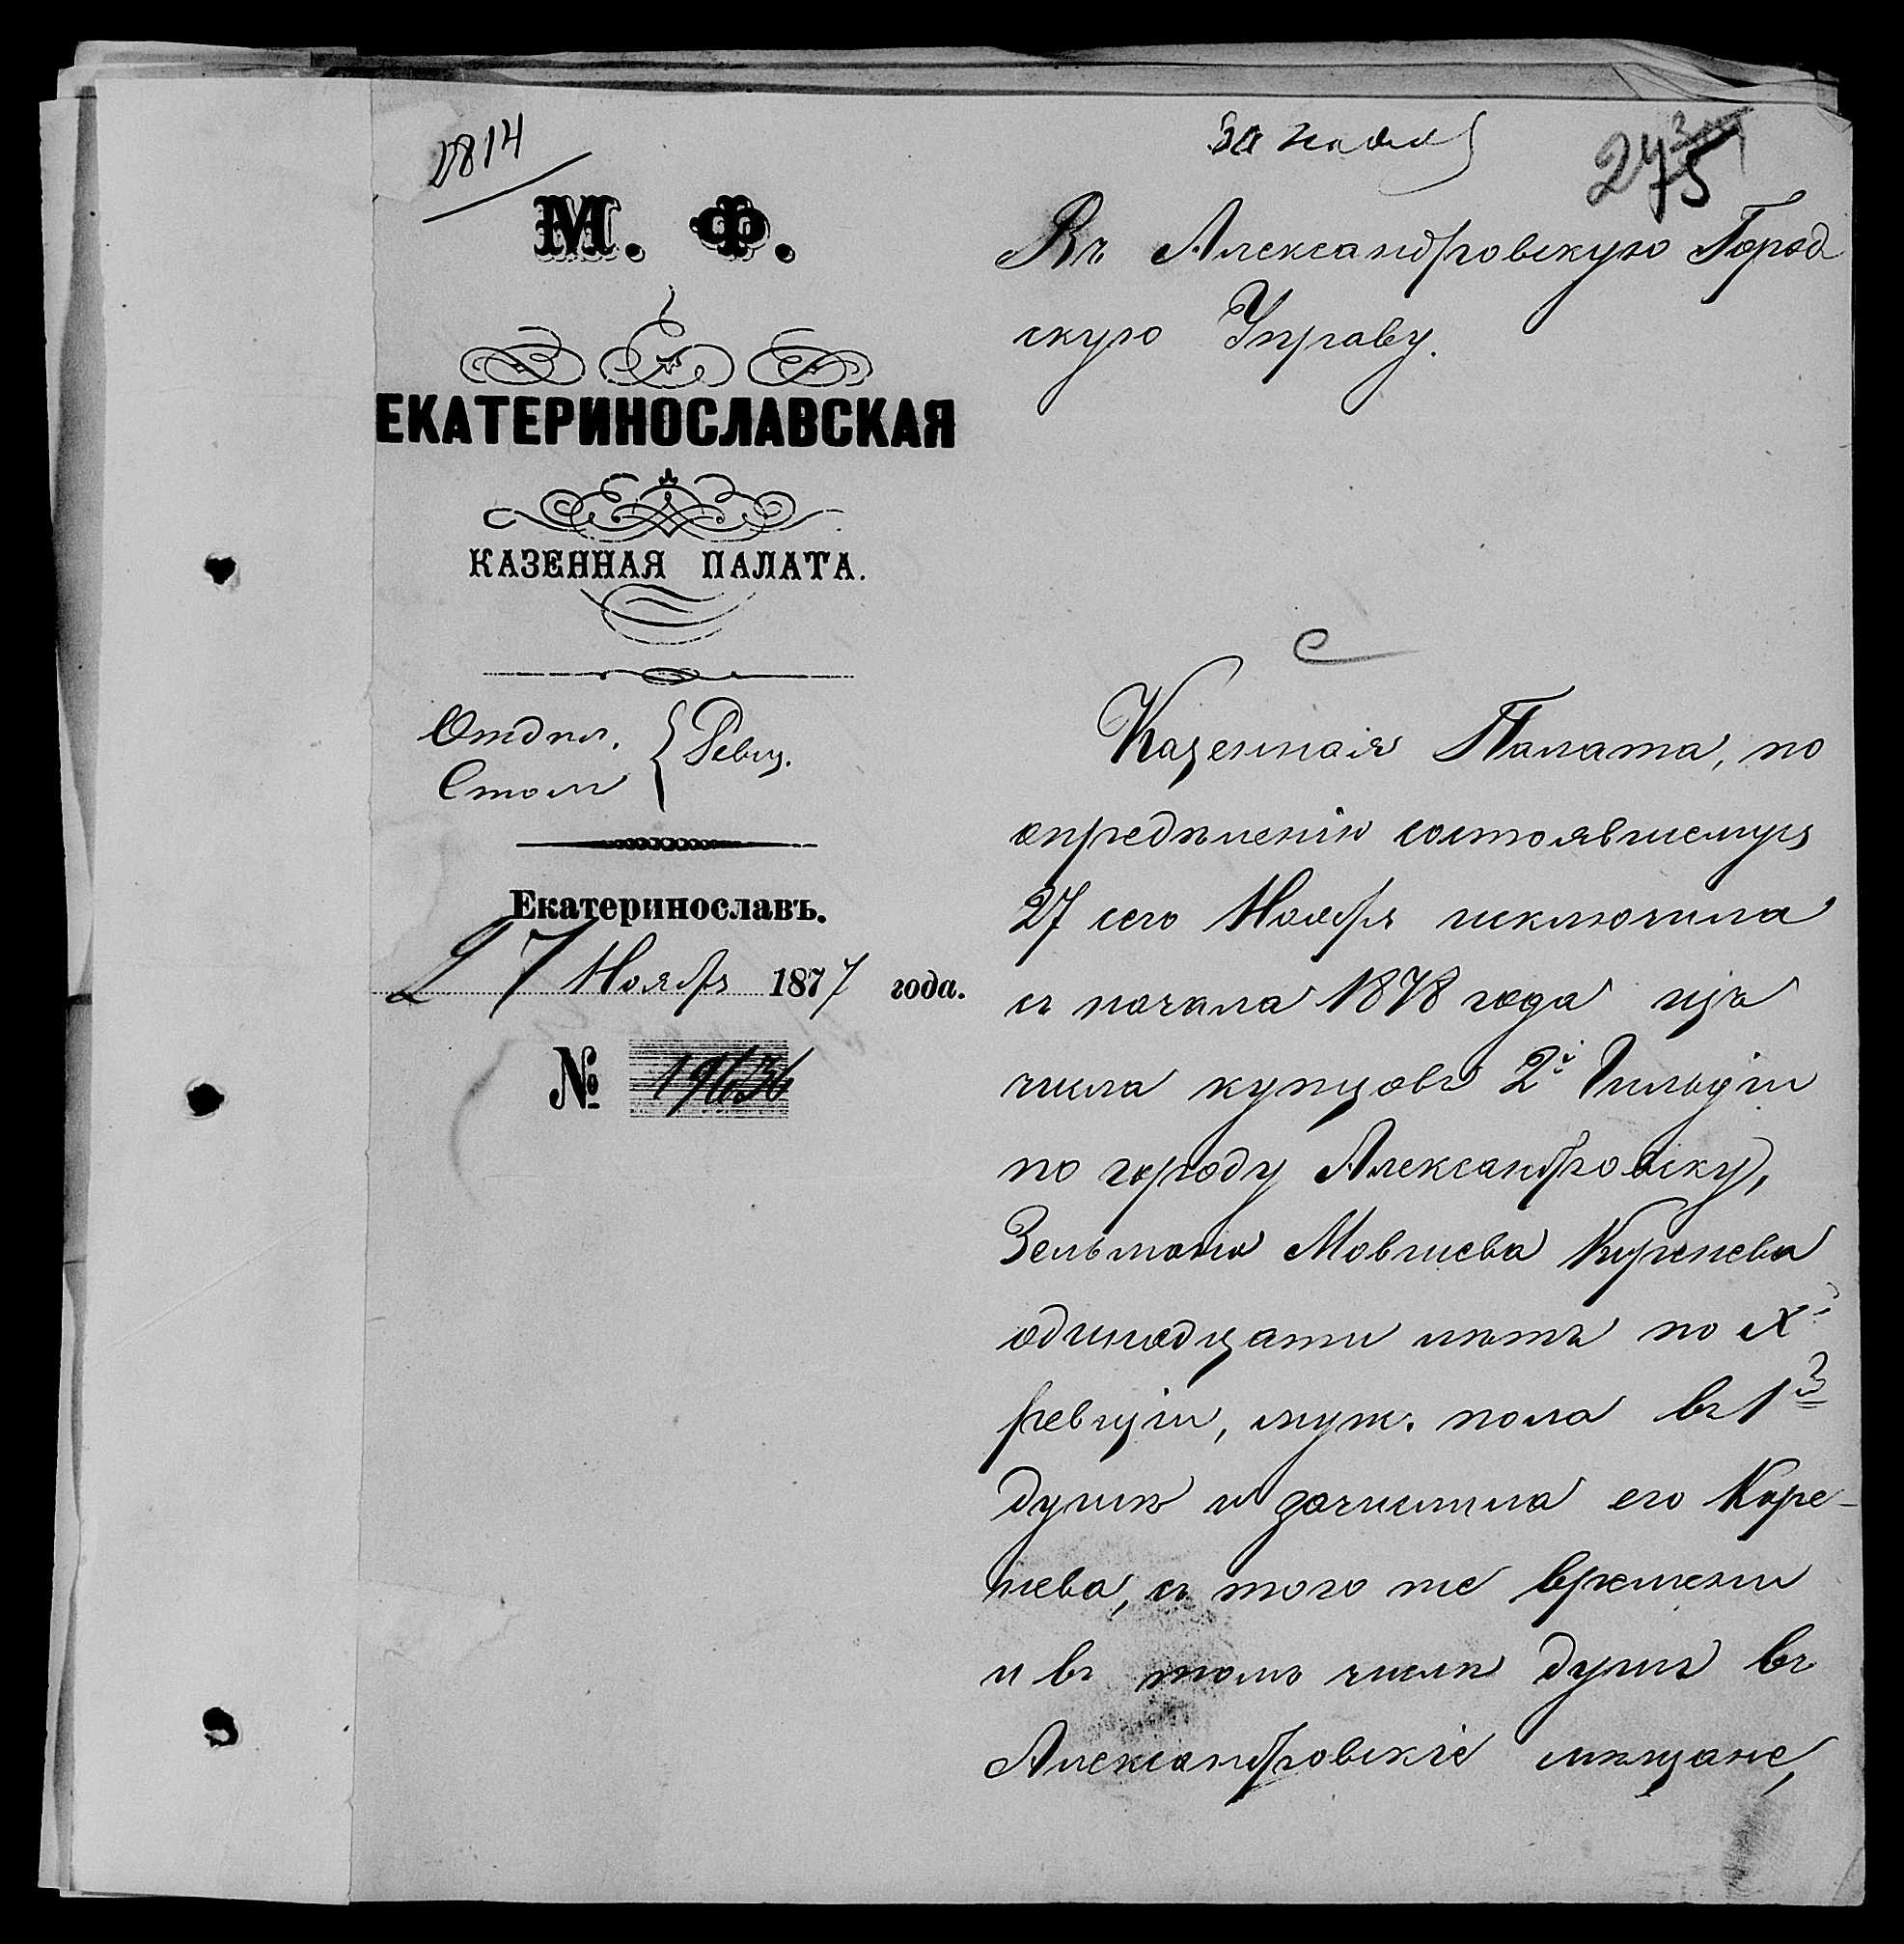 1814
275
М. Ф.
ЕКАТЕРИНОСЛАВСКАЯ
КАЗЕННАЯ ПАЛАТА.
Отдѣл.
Столъ
Ревиз.
Екатеринославъ.
27 Ноября 1877 года.
№ 19636
Въ Александровскую Город
скую Управу.
Казенная Палата, по
опредѣленію состоявшемуся
27 сего Ноября исключила
съ начала 1878 года изъ
числа купцовъ 2й Гильдіи
по городу Александровску,
Зельмана Мовшева Коренева
одинадцати лѣтъ по Xй
ревизіи, муж. пола въ 1й
душѣ и зачислила его Коре-
нева, съ того же времени
и въ томъ числѣ душъ въ
Александровскіе мѣщане,